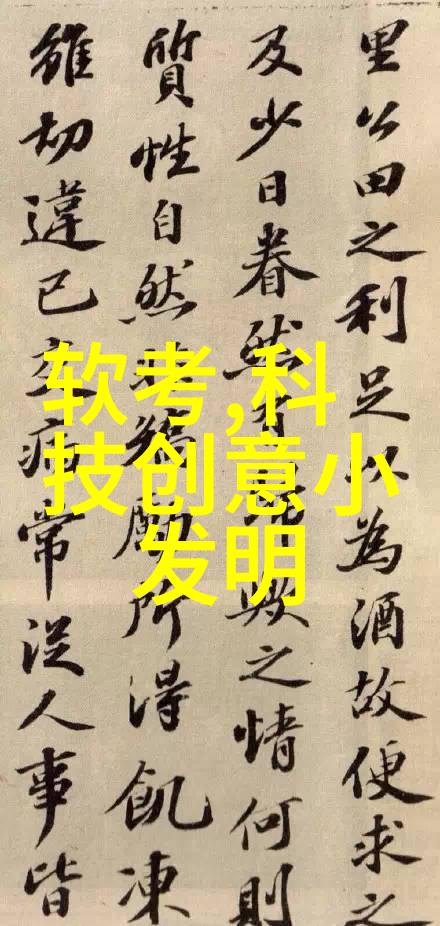 里公田之利足以為酒故便求之
及少日眷然有歸歟之情何則
質性自然非矯勵所得飢凍
雖切違己交病常從人事皆
软考,科
技创意小
发明